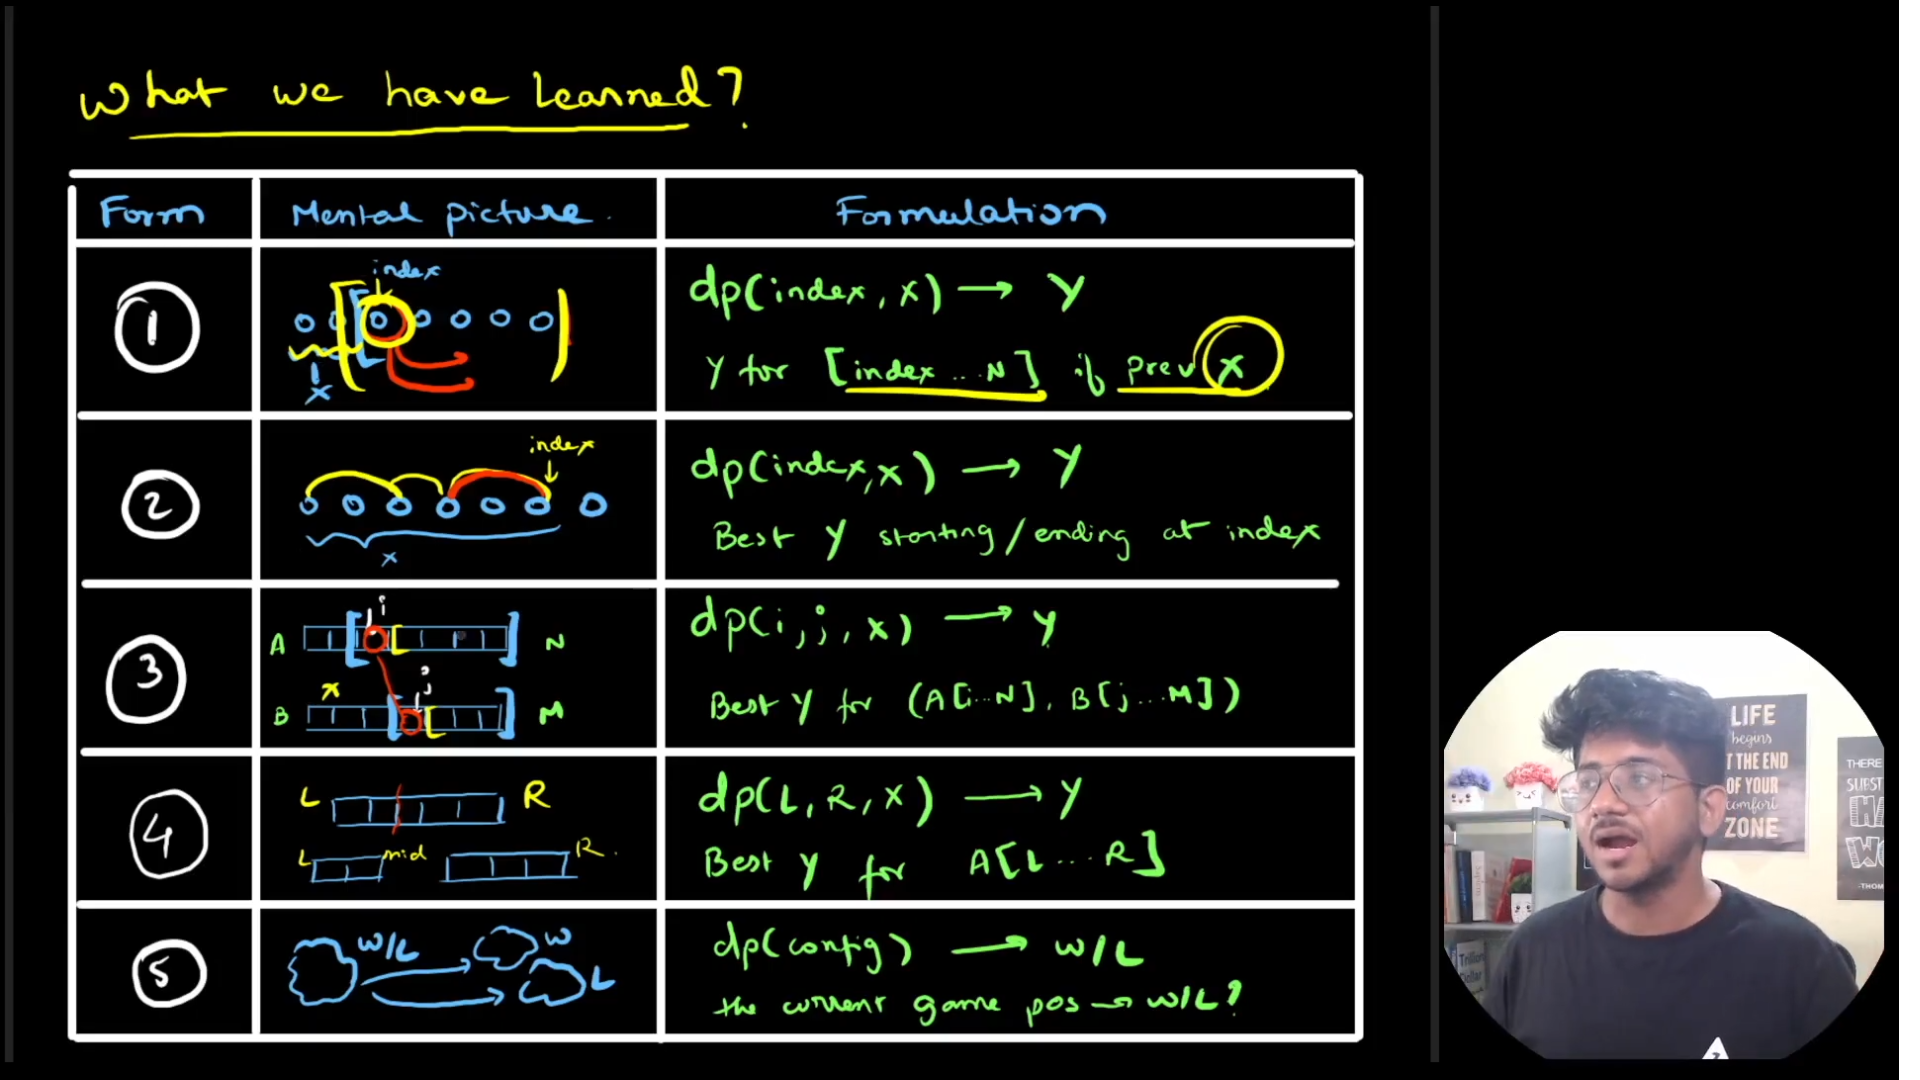 What we have Learned?
Form
Mental picture.
Formulation
1
index
x
dp(index, x) → Y
Y for [index .. N] if prev x
2
index
x
dp(index, x) → Y
Best Y starting/ending at index
3
i
A
N
x
j
B
M
dp(i, j, x) → Y
Best Y for (A[i...N], B[j...M])
4
L
R
L
mid
R.
dp(L, R, x) → Y
Best Y for A[L ... R]
5
W/L
W
L
dp(config) → W/L
the current game pos → W/L?
LIFE
begins
T THE END
OF YOUR
comfort
ZONE
THERE
SUBST
HA
WO
-THOM
Trillion
Dollar